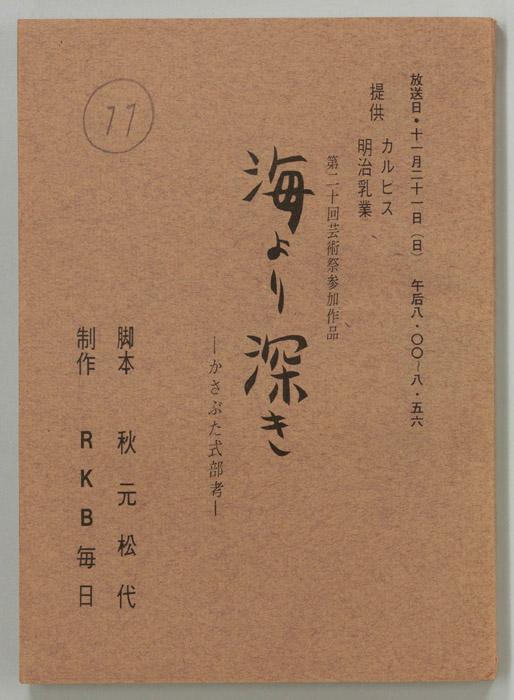 放送日・十一月二十一日(日) 午后八・〇〇~八・五六
提供 カルピス
明治乳業
第二十回芸術祭参加作品
海より深き
―かさぶた式部考―
脚本 秋元松代
制作 RKB毎日
11